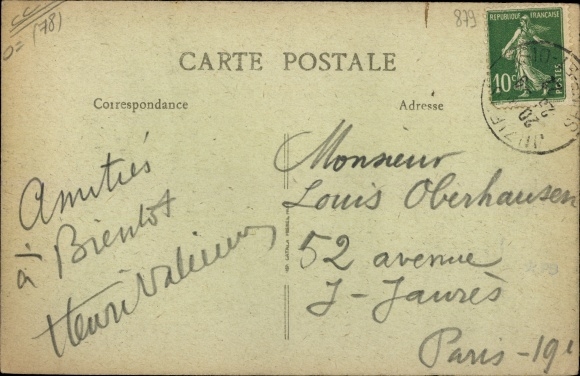 (78)
879
CARTE POSTALE
REPUBLIQUE FRANÇAISE
10c
POSTES
Correspondance
Adresse
Amitiés
à Bientot
Henri
Monsieur
Louis Oberhausen
52 avenue
J-Jaurès
Paris-19e